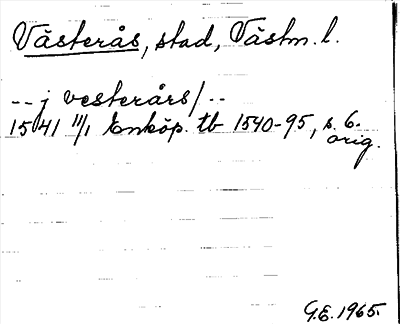 Västerås, stad, Västm. l.
-- j vesterårs/--
1541 11/1 Enköp. tb 1540-95, s. 6.
orig.
G.E. 1965.